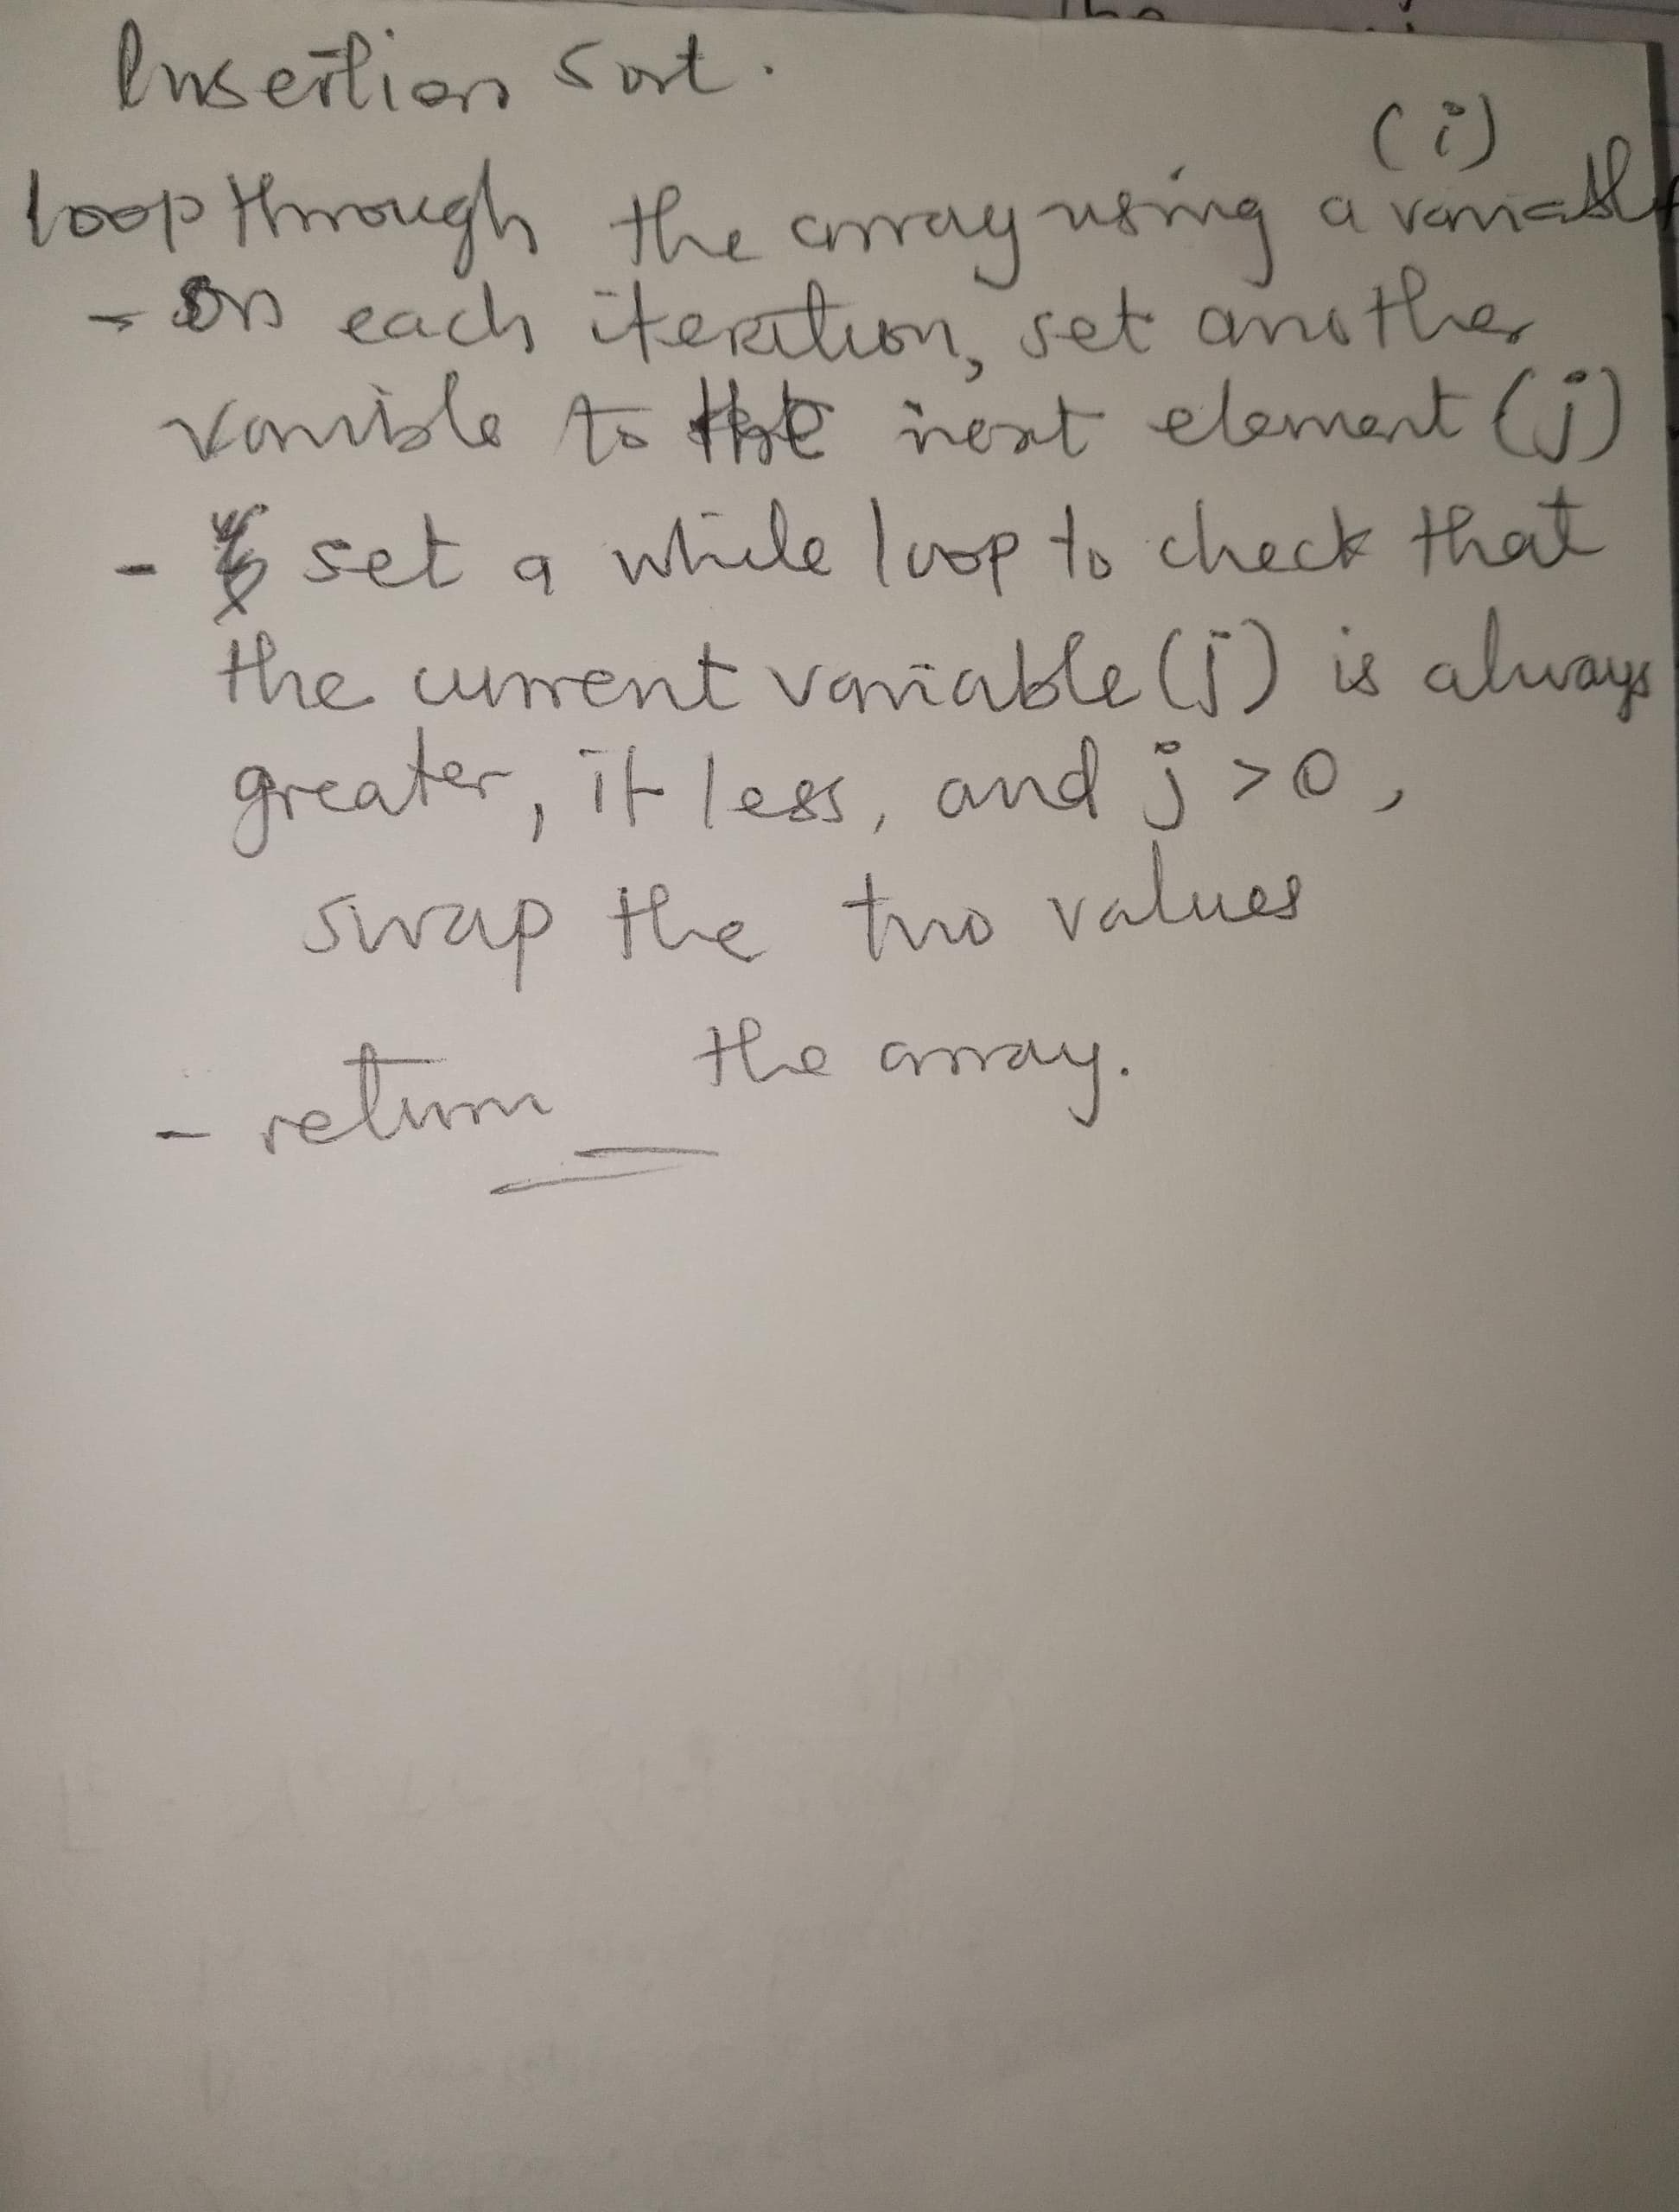 Insertion Sort.
(i)
loop through the array using a variable
- On each iteration, set another
varible to the next element (j)
- set a while loop to check that
the current variable (j) is always
greater, if less, and j > 0,
swap the two values
- return the array.